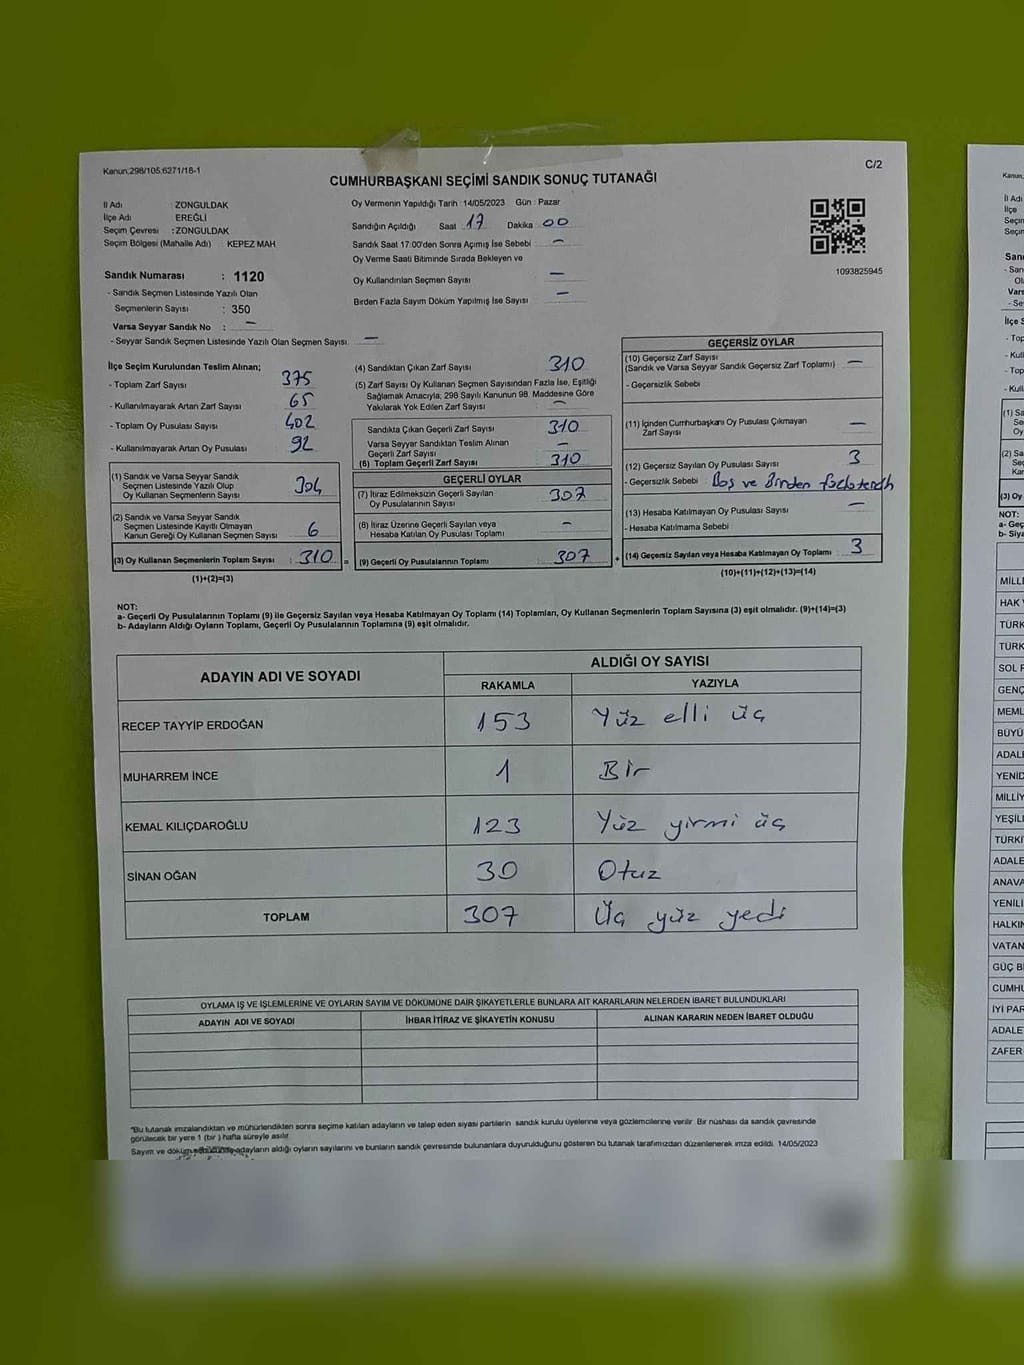 Kanun;298/105;6271/18-1
C/2
CUMHURBAŞKANI SEÇİMİ SANDIK SONUÇ TUTANAĞI
İl Adı : ZONGULDAK
İlçe Adı EREĞLİ
Seçim Çevresi : ZONGULDAK
Seçim Bölgesi (Mahalle Adı) : KEPEZ MAH
Oy Vermenin Yapıldığı Tarih :14/05/2023 Gün : Pazar
Sandığın Açıldığı Saat 17 Dakika 00
Sandık Saat 17:00'den Sonra Açımış İse Sebebi : —
Oy Verme Saati Bitiminde Sırada Bekleyen ve
Oy Kullandırılan Seçmen Sayısı —
Birden Fazla Sayım Döküm Yapılmış İse Sayısı —
1093825945
Sandık Numarası : 1120
- Sandık Seçmen Listesinde Yazılı Olan
Seçmenlerin Sayısı : 350
Varsa Seyyar Sandık No : —
- Seyyar Sandık Seçmen Listesinde Yazılı Olan Seçmen Sayısı. —
İlçe Seçim Kurulundan Teslim Alınan;
- Toplam Zarf Sayısı 375
- Kullanılmayarak Artan Zarf Sayısı 65
- Toplam Oy Pusulası Sayısı 402
- Kullanılmayarak Artan Oy Pusulası 92
(1) Sandık ve Varsa Seyyar Sandık
Seçmen Listesinde Yazılı Olup
Oy Kullanan Seçmenlerin Sayısı 304
(2) Sandık ve Varsa Seyyar Sandık
Seçmen Listesinde Kayıtlı Olmayan
Kanun Gereği Oy Kullanan Seçmen Sayısı 6
(3) Oy Kullanan Seçmenlerin Toplam Sayısı : 310 =
(1)+(2)=(3)
(4) Sandıktan Çıkan Zarf Sayısı 310
(5) Zarf Sayısı Oy Kullanan Seçmen Sayısından Fazla İse, Eşitliği
Sağlamak Amacıyla, 298 Sayılı Kanunun 98. Maddesine Göre
Yakılarak Yok Edilen Zarf Sayısı —
Sandıkta Çıkan Geçerli Zarf Sayısı 310
Varsa Seyyar Sandıktan Teslim Alınan
Geçerli Zarf Sayısı —
(6) Toplam Geçerli Zarf Sayısı 310
GEÇERLİ OYLAR
(7) İtiraz Edilmeksizin Geçerli Sayılan
Oy Pusulalarının Sayısı 307
(8) İtiraz Üzerine Geçerli Sayılan veya
Hesaba Katılan Oy Pusulası Toplamı —
(9) Geçerli Oy Pusulalarının Toplamı 307 +
GEÇERSİZ OYLAR
(10) Geçersiz Zarf Sayısı
(Sandık ve Varsa Seyyar Sandık Geçersiz Zarf Toplamı) —
- Geçersizlik Sebebi
(11) İçinden Cumhurbaşkanı Oy Pusulası Çıkmayan
Zarf Sayısı —
(12) Geçersiz Sayılan Oy Pusulası Sayısı 3
- Geçersizlik Sebebi : Boş ve Birden
(13) Hesaba Katılmayan Oy Pusulası Sayısı —
- Hesaba Katılmama Sebebi
(14) Geçersiz Sayılan veya Hesaba Katılmayan Oy Toplamı 3
(10)+(11)+(12)+(13)=(14)
NOT:
a- Geçerli Oy Pusulalarının Toplamı (9) ile Geçersiz Sayılan veya Hesaba Katılmayan Oy Toplamı (14) Toplamları, Oy Kullanan Seçmenlerin Toplam Sayısına (3) eşit olmalıdır. (9)+(14)=(3)
b- Adayların Aldığı Oyların Toplamı, Geçerli Oy Pusulalarının Toplamına (9) eşit olmalıdır.
ADAYIN ADI VE SOYADI
ALDIĞI OY SAYISI
RAKAMLA YAZIYLA
RECEP TAYYİP ERDOĞAN 153 Yüz elli üç
MUHARREM İNCE 1 Bir
KEMAL KILIÇDAROĞLU 123 Yüz yirmi üç
SİNAN OĞAN 30 Otuz
TOPLAM 307 Üç yüz yedi
OYLAMA İŞ VE İŞLEMLERİNE VE OYLARIN SAYIM VE DÖKÜMÜNE DAİR ŞİKAYETLERLE BUNLARA AİT KARARLARIN NELERDEN İBARET BULUNDUKLARI
ADAYIN ADI VE SOYADI İHBAR İTİRAZ VE ŞİKAYETİN KONUSU ALINAN KARARIN NEDEN İBARET OLDUĞU
"Bu tutanak imzalandıktan ve mühürlendikten sonra seçime katılan adayların ve talep eden siyasi partilerin sandık kurulu üyelerine veya gözlemcilerine verilir. Bir nüshası da sandık çevresinde
görülecek bir yere 1 (bir ) hafta süreyle asılır.
Sayım ve döküm adayların aldığı oyların sayılarını ve bunların sandık çevresinde bulunanlara duyurulduğunu gösteren bu tutanak tarafımızdan düzenlenerek imza edildi. 14/05/2023
Kanun;
İl Adı
İlçe
NOT:
MİLLİ
HAK
TÜRK
TÜRK
SOL
GENÇ
MEML
BÜYÜ
ADAL
YENİD
MİLLİY
YEŞİL
TÜRKİ
ADALE
ANAVA
YENİLİ
HALKIN
VATAN
GÜÇ Bİ
CUMHU
İYİ PAR
ADALE
ZAFER